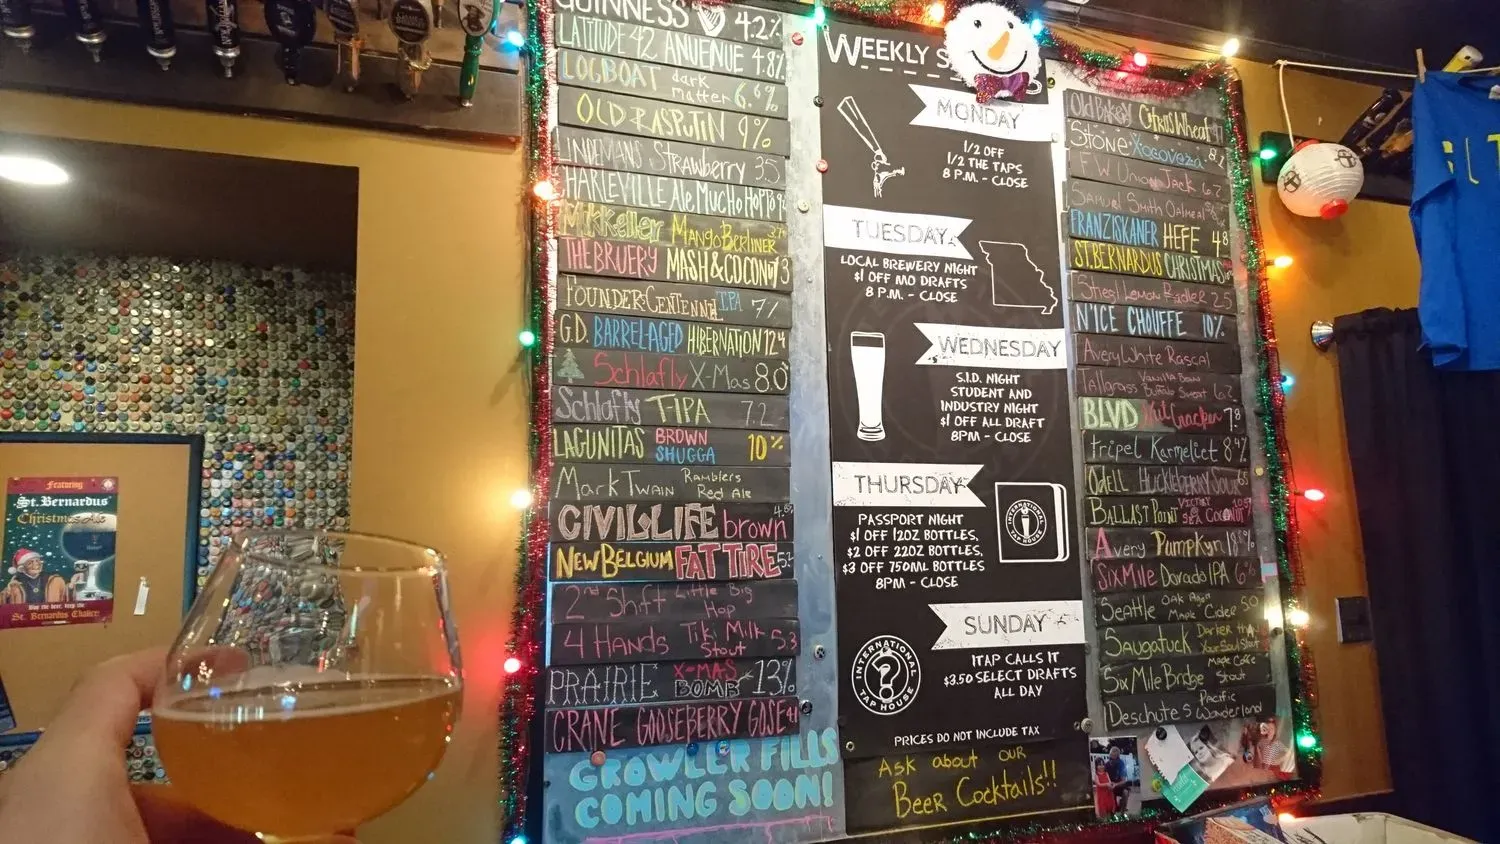 GUINNESS 4.2%
LATITUDE 42 ANUENUE 4.8%
LOGBOAT dark matter 6.6%
OLD RASPUTIN 9%
LINDEMANS Strawberry 3.5
CHARLEVILLE Ale Mucho Hopto
Mikkeller Mango Berliner 3.7
THE BRUERY MASH & COCONUT 13
FOUNDERS CENTENNIAL IPA 7%
G.D. BARREL-AGED HIBERNATION 12.4
Schlafly X-Mas 8.0
Schlafly T-IPA 7.2
LAGUNITAS BROWN SHUGGA 10%
MARK TWAIN Ramblers Red Ale
CIVIL LIFE brown 4.8%
NEW BELGIUM FAT TIRE 5.2
2nd Shift Little Big Hop
4 HANDS Tiki Milk Stout 5.3
PRAIRIE X-MAS BOMB 13%
CRANE GOOSEBERRY GOSE 4.1
GROWLER FILLS
COMING SOON!
WEEKLY S
MONDAY
1/2 OFF
1/2 THE TAPS
8 P.M. - CLOSE
TUESDAY
LOCAL BREWERY NIGHT
$1 OFF MO DRAFTS
8 P.M. - CLOSE
WEDNESDAY
S.I.D. NIGHT
STUDENT AND
INDUSTRY NIGHT
$1 OFF ALL DRAFT
8PM - CLOSE
THURSDAY
PASSPORT NIGHT
$1 OFF 12OZ BOTTLES,
$2 OFF 22OZ BOTTLES,
$3 OFF 750ML BOTTLES
8PM - CLOSE
INTERNATIONAL
TAP HOUSE
SUNDAY
ITAP CALLS IT
$3.50 SELECT DRAFTS
ALL DAY
INTERNATIONAL
?
TAP HOUSE
PRICES DO NOT INCLUDE TAX
Ask about our
Beer Cocktails!!
Old Bakery Citrus Wheat
Stone Xocoveza 8.1
EFW Union Jack
Samuel Smith Oatmeal
FRANZISKANER HEFE 4.8
ST. BERNARDUS CHRISTMAS
Stiegl Lemon Radler 2.5
N'ICE CHOUFFE 10%
Avery White Rascal
Tallgrass Vanilla Bean Buffalo Sweat 6.2
BLVD Nut Cracker 7.8
Tripel Karmeliet 8.4%
Odell Huckleberry Sour
BALLAST POINT VICTORY SEA Coconut
Avery Pumpkyn
Six Mile Dorado IPA 6%
Seattle Oak Aged Maple Cider 5.0
Saugatuck Darker than Your Soul Stout
Six Mile Bridge Made Cake Stout
Deschutes Pacific Wonderland
Featuring
St. Bernardus
Christmas Ale
Buy the beer, keep the
St. Bernardus Chalice!